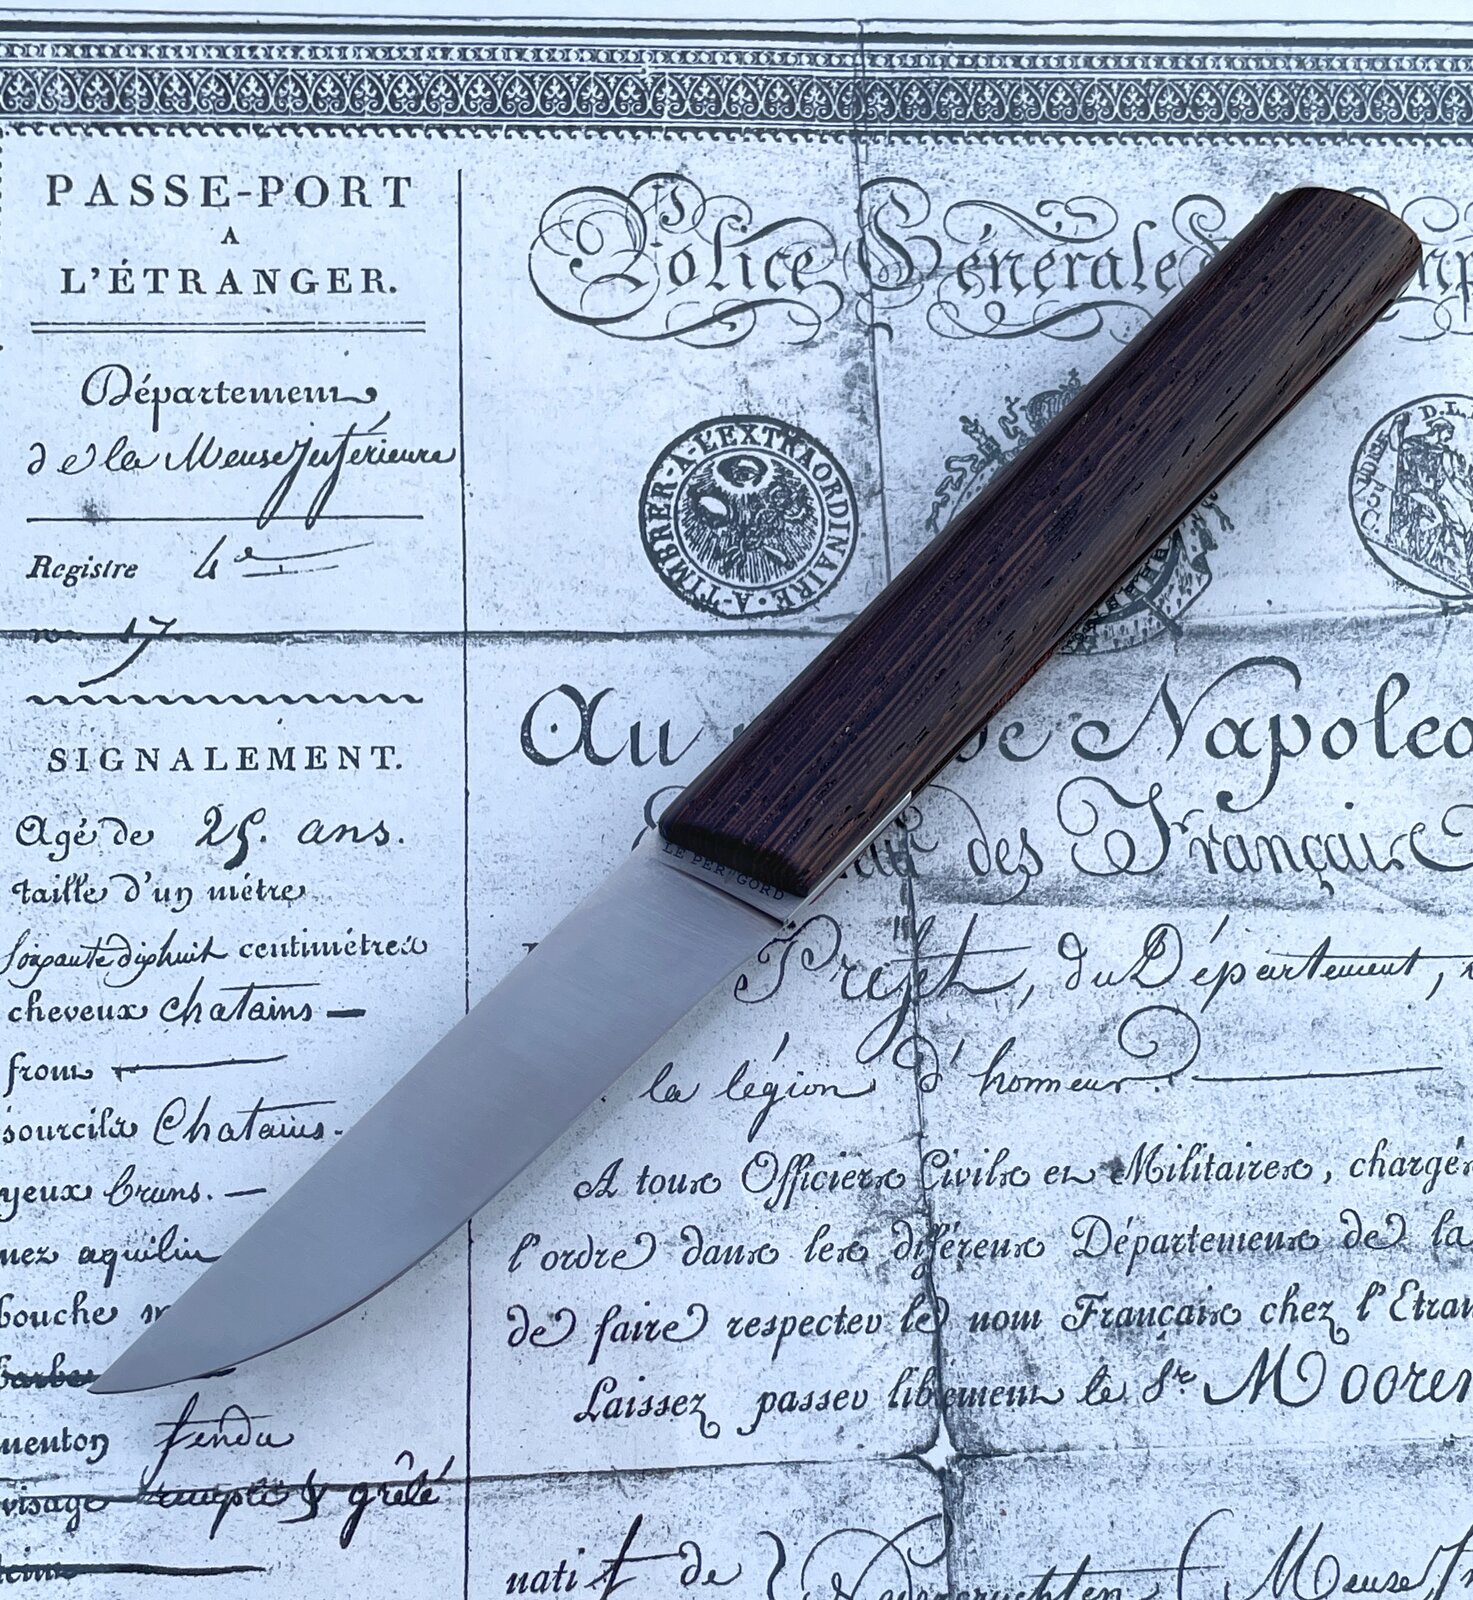 PASSE-PORT
A
L'ÉTRANGER.
Département
de la Meuse Inférieure
Registre 4e
no 17
SIGNALEMENT.
Agé de 25. ans.
taille d'un métre
soixante dixhuit centimétres
cheveux chatains
front
sourcils Chatains.
yeux bruns.
nez aquilin
bouche
barbe
menton fendu
visage grêlé
teint
Police Générale
A-TIMBRER-A-L'EXTRAORDINAIRE
D.L.
Au de Napoleo
des Français
Prefet, du Département,
la légion d'honneur.
A tous Officiers Civils et Militaires, chargés
l'ordre dans les différens Départemens de la
de faire respecter le nom Français chez l'Etran
Laissez passer librement le Sr. Mooren
natif de (Meuse
LE PERIGORD